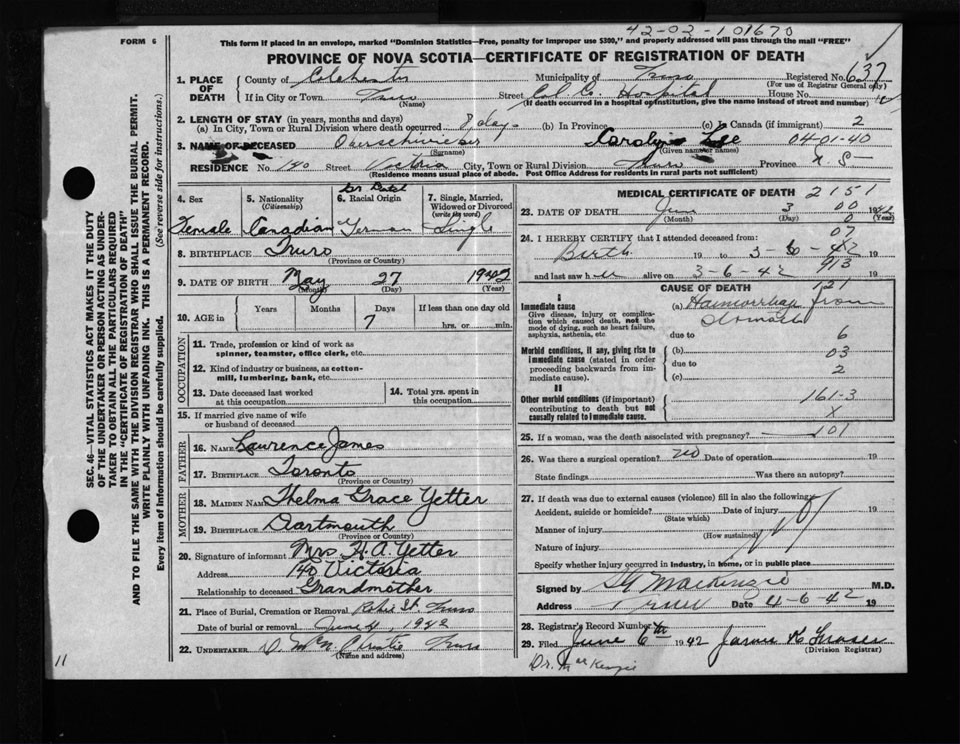 42-02-101670
FORM 6
This form if placed in an envelope, marked "Dominion Statistics—Free, penalty for improper use $300," and properly addressed will pass through the mail "FREE"
PROVINCE OF NOVA SCOTIA—CERTIFICATE OF REGISTRATION OF DEATH
1. PLACE OF DEATH
County of Colchester Municipality of Truro Registered No. 637
(For use of Registrar General only)
If in City or Town Truro Street Col Co. Hospital House No.
(Name) (If death occurred in a hospital or institution, give the name instead of street and number)
2. LENGTH OF STAY (in years, months and days)
(a) In City, Town or Rural Division where death occurred 8 days (b) In Province (c) In Canada (if immigrant) 2
3. NAME OF DECEASED Carolyn Lee 04-01-40
(Surname) (Given name or names)
RESIDENCE No. 140 Street Victoria City, Town or Rural Division Truro Province N.S.
(Residence means usual place of abode. Post Office Address for residents in rural parts not sufficient)
4. Sex
Female
5. Nationality (Citizenship)
Canadian
6. Racial Origin
German
7. Single, Married, Widowed or Divorced (write the word)
Single
8. BIRTHPLACE Truro
(Province or Country)
9. DATE OF BIRTH May 27 1942
(Month) (Day) (Year)
10. AGE in Years Months Days If less than one day old
7 hrs. or min.
OCCUPATION
11. Trade, profession or kind of work as spinner, teamster, office clerk, etc.
12. Kind of industry or business, as cotton-mill, lumbering, bank, etc.
13. Date deceased last worked at this occupation
14. Total yrs. spent in this occupation
15. If married give name of wife or husband of deceased
FATHER
16. NAME Lawrence James
17. BIRTHPLACE Toronto
(Province or Country)
MOTHER
18. MAIDEN NAME Thelma Grace Yetter
19. BIRTHPLACE Dartmouth
(Province or Country)
20. Signature of informant Mrs H. A. Yetter
Address 140 Victoria
Relationship to deceased Grandmother
21. Place of Burial, Cremation or Removal Robie St. Truro
Date of burial or removal June 4 1942
22. UNDERTAKER Truro
(Name and address)
MEDICAL CERTIFICATE OF DEATH 2151
23. DATE OF DEATH June 3 1942
(Month) (Day) (Year)
00
0
07
24. I HEREBY CERTIFY that I attended deceased from:
Birth 19 to 3-6-42 19
and last saw h alive on 3-6-42 19
913
CAUSE OF DEATH
121
I
Immediate cause
Give disease, injury or complication which caused death, not the mode of dying, such as heart failure, asphyxia, asthenia, etc.
(a) Haemorrhage from
stomach
due to 6
Morbid conditions, if any, giving rise to immediate cause (stated in order proceeding backwards from immediate cause).
(b) 03
due to
(c) 2
II
Other morbid conditions (if important) contributing to death but not causally related to immediate cause.
161-3
X
25. If a woman, was the death associated with pregnancy? — 101
26. Was there a surgical operation? no Date of operation 19
State findings Was there an autopsy?
27. If death was due to external causes (violence) fill in also the following:
Accident, suicide or homicide? Date of injury 19
(State which)
Manner of injury
(How sustained)
Nature of injury
Specify whether injury occurred in industry, in home, or in public place
Signed by Mackenzie M.D.
Address Truro Date 4-6-42 19
28. Registrar's Record Number
29. Filed June 6th 1942 Fraser
(Division Registrar)
Dr. MacKenzie
11
SEC. 46—VITAL STATISTICS ACT MAKES IT THE DUTY
OF THE UNDERTAKER OR PERSON ACTING AS UNDER-
TAKER TO OBTAIN ALL THE PARTICULARS REQUIRED
IN THE "CERTIFICATE OF REGISTRATION OF DEATH"
AND TO FILE THE SAME WITH THE DIVISION REGISTRAR WHO SHALL ISSUE THE BURIAL PERMIT.
WRITE PLAINLY WITH UNFADING INK. THIS IS A PERMANENT RECORD.
Every item of Information should be carefully supplied. (See reverse side for instructions.)